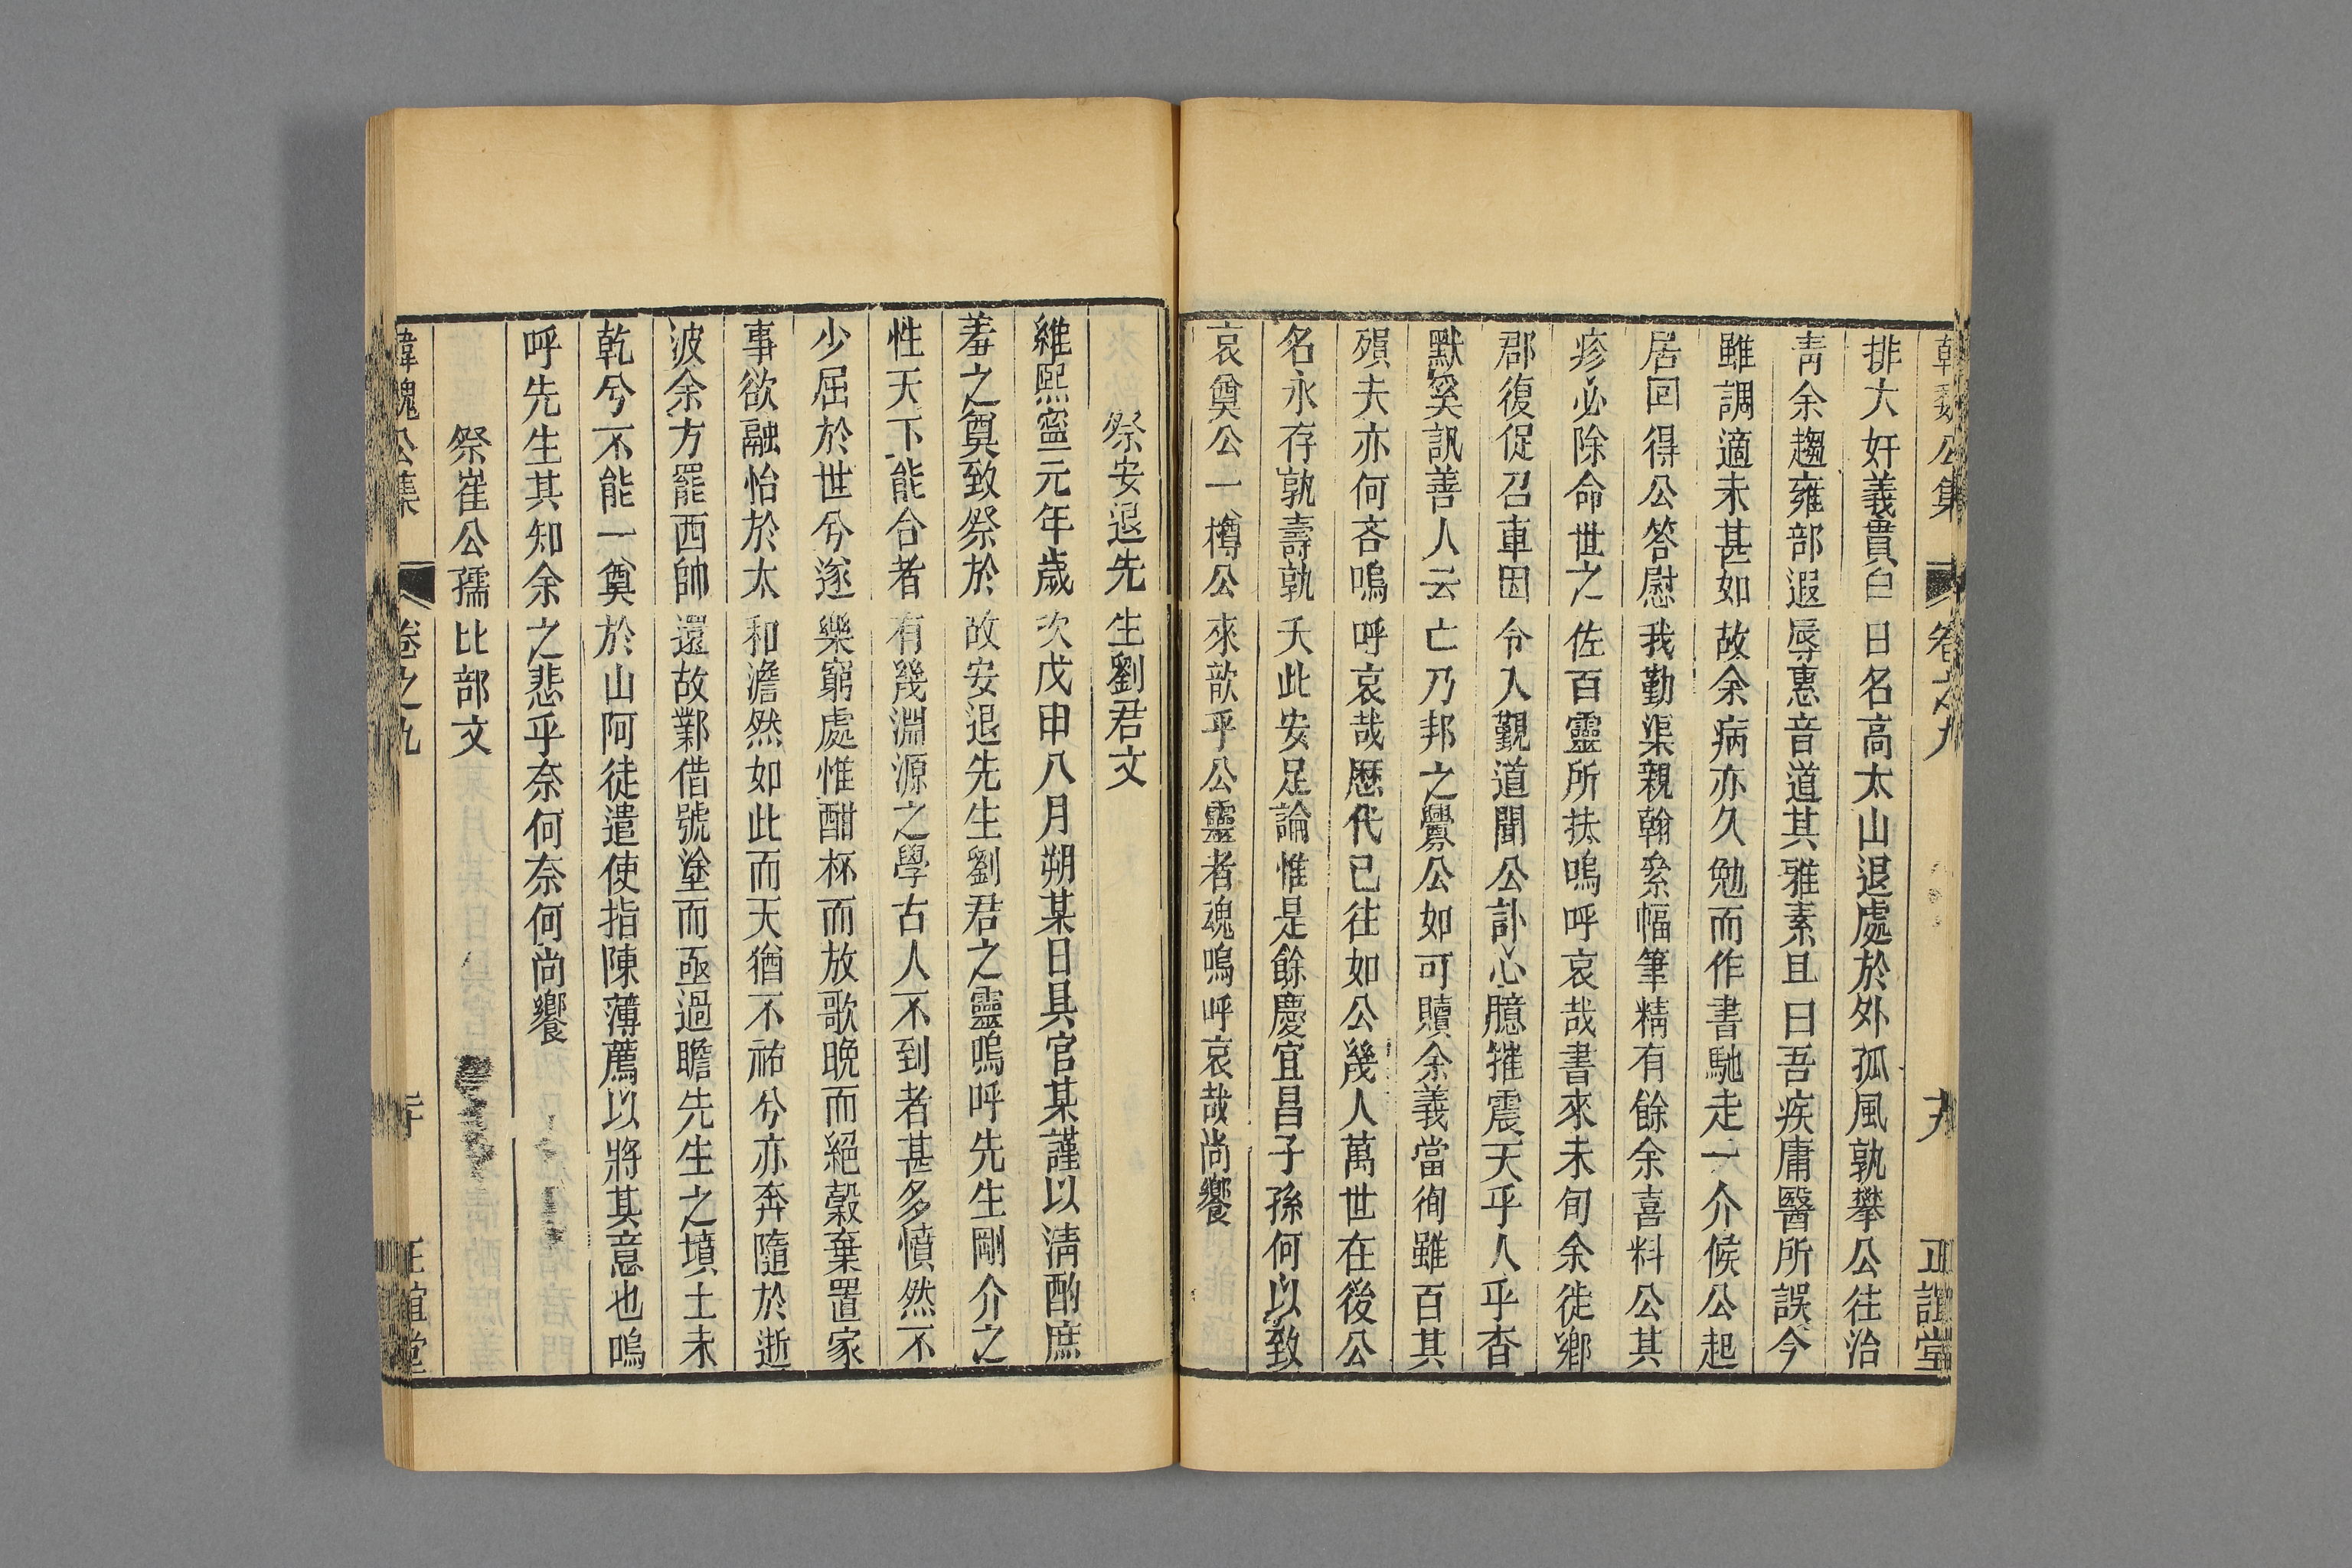 韓魏公集 卷之九 十九 正誼堂
排大奸義貫白日名高太山退處於外孤風孰攀公往治
靑余趨雍部遐辱惠音道其雅素且曰吾疾庸醫所誤今
雖調適未甚如故余病亦久勉而作書馳走一介候公起
居回得公答慰我勤渠親翰絫幅筆精有餘余喜料公其
疹必除命世之佐百靈所扶嗚呼哀哉書來未旬余徙鄉
郡復促召車因令入覲道聞公訃心臆摧震天乎人乎杳
默奚訊善人云亡乃邦之釁公如可贖余義當徇雖百其
殞夫亦何吝嗚呼哀哉歷代已往如公幾人萬世在後公
名永存孰壽孰夭此安足論惟是餘慶宜昌子孫何以致
哀奠公一樽公來歆乎公靈者魂嗚呼哀哉尚饗
祭安退先生劉君文
維熙寧元年歲次戊申八月朔某日具官某謹以淸酌庶
羞之奠致祭於故安退先生劉君之靈嗚呼先生剛介之
性天下能合者有幾淵源之學古人不到者甚多憤然不
少屈於世兮遂樂窮處惟酣杯而放歌晚而絕穀棄置家
事欲融怡於太和澹然如此而天猶不祐兮亦奔隨於逝
波余方罷西帥還故鄴借號塗而亟過瞻先生之墳土未
乾兮不能一奠於山阿徒遣使指陳薄薦以將其意也嗚
呼先生其知余之悲乎奈何奈何尚饗
祭崔公孺比部文
韓魏公集 卷之九 二十 正誼堂